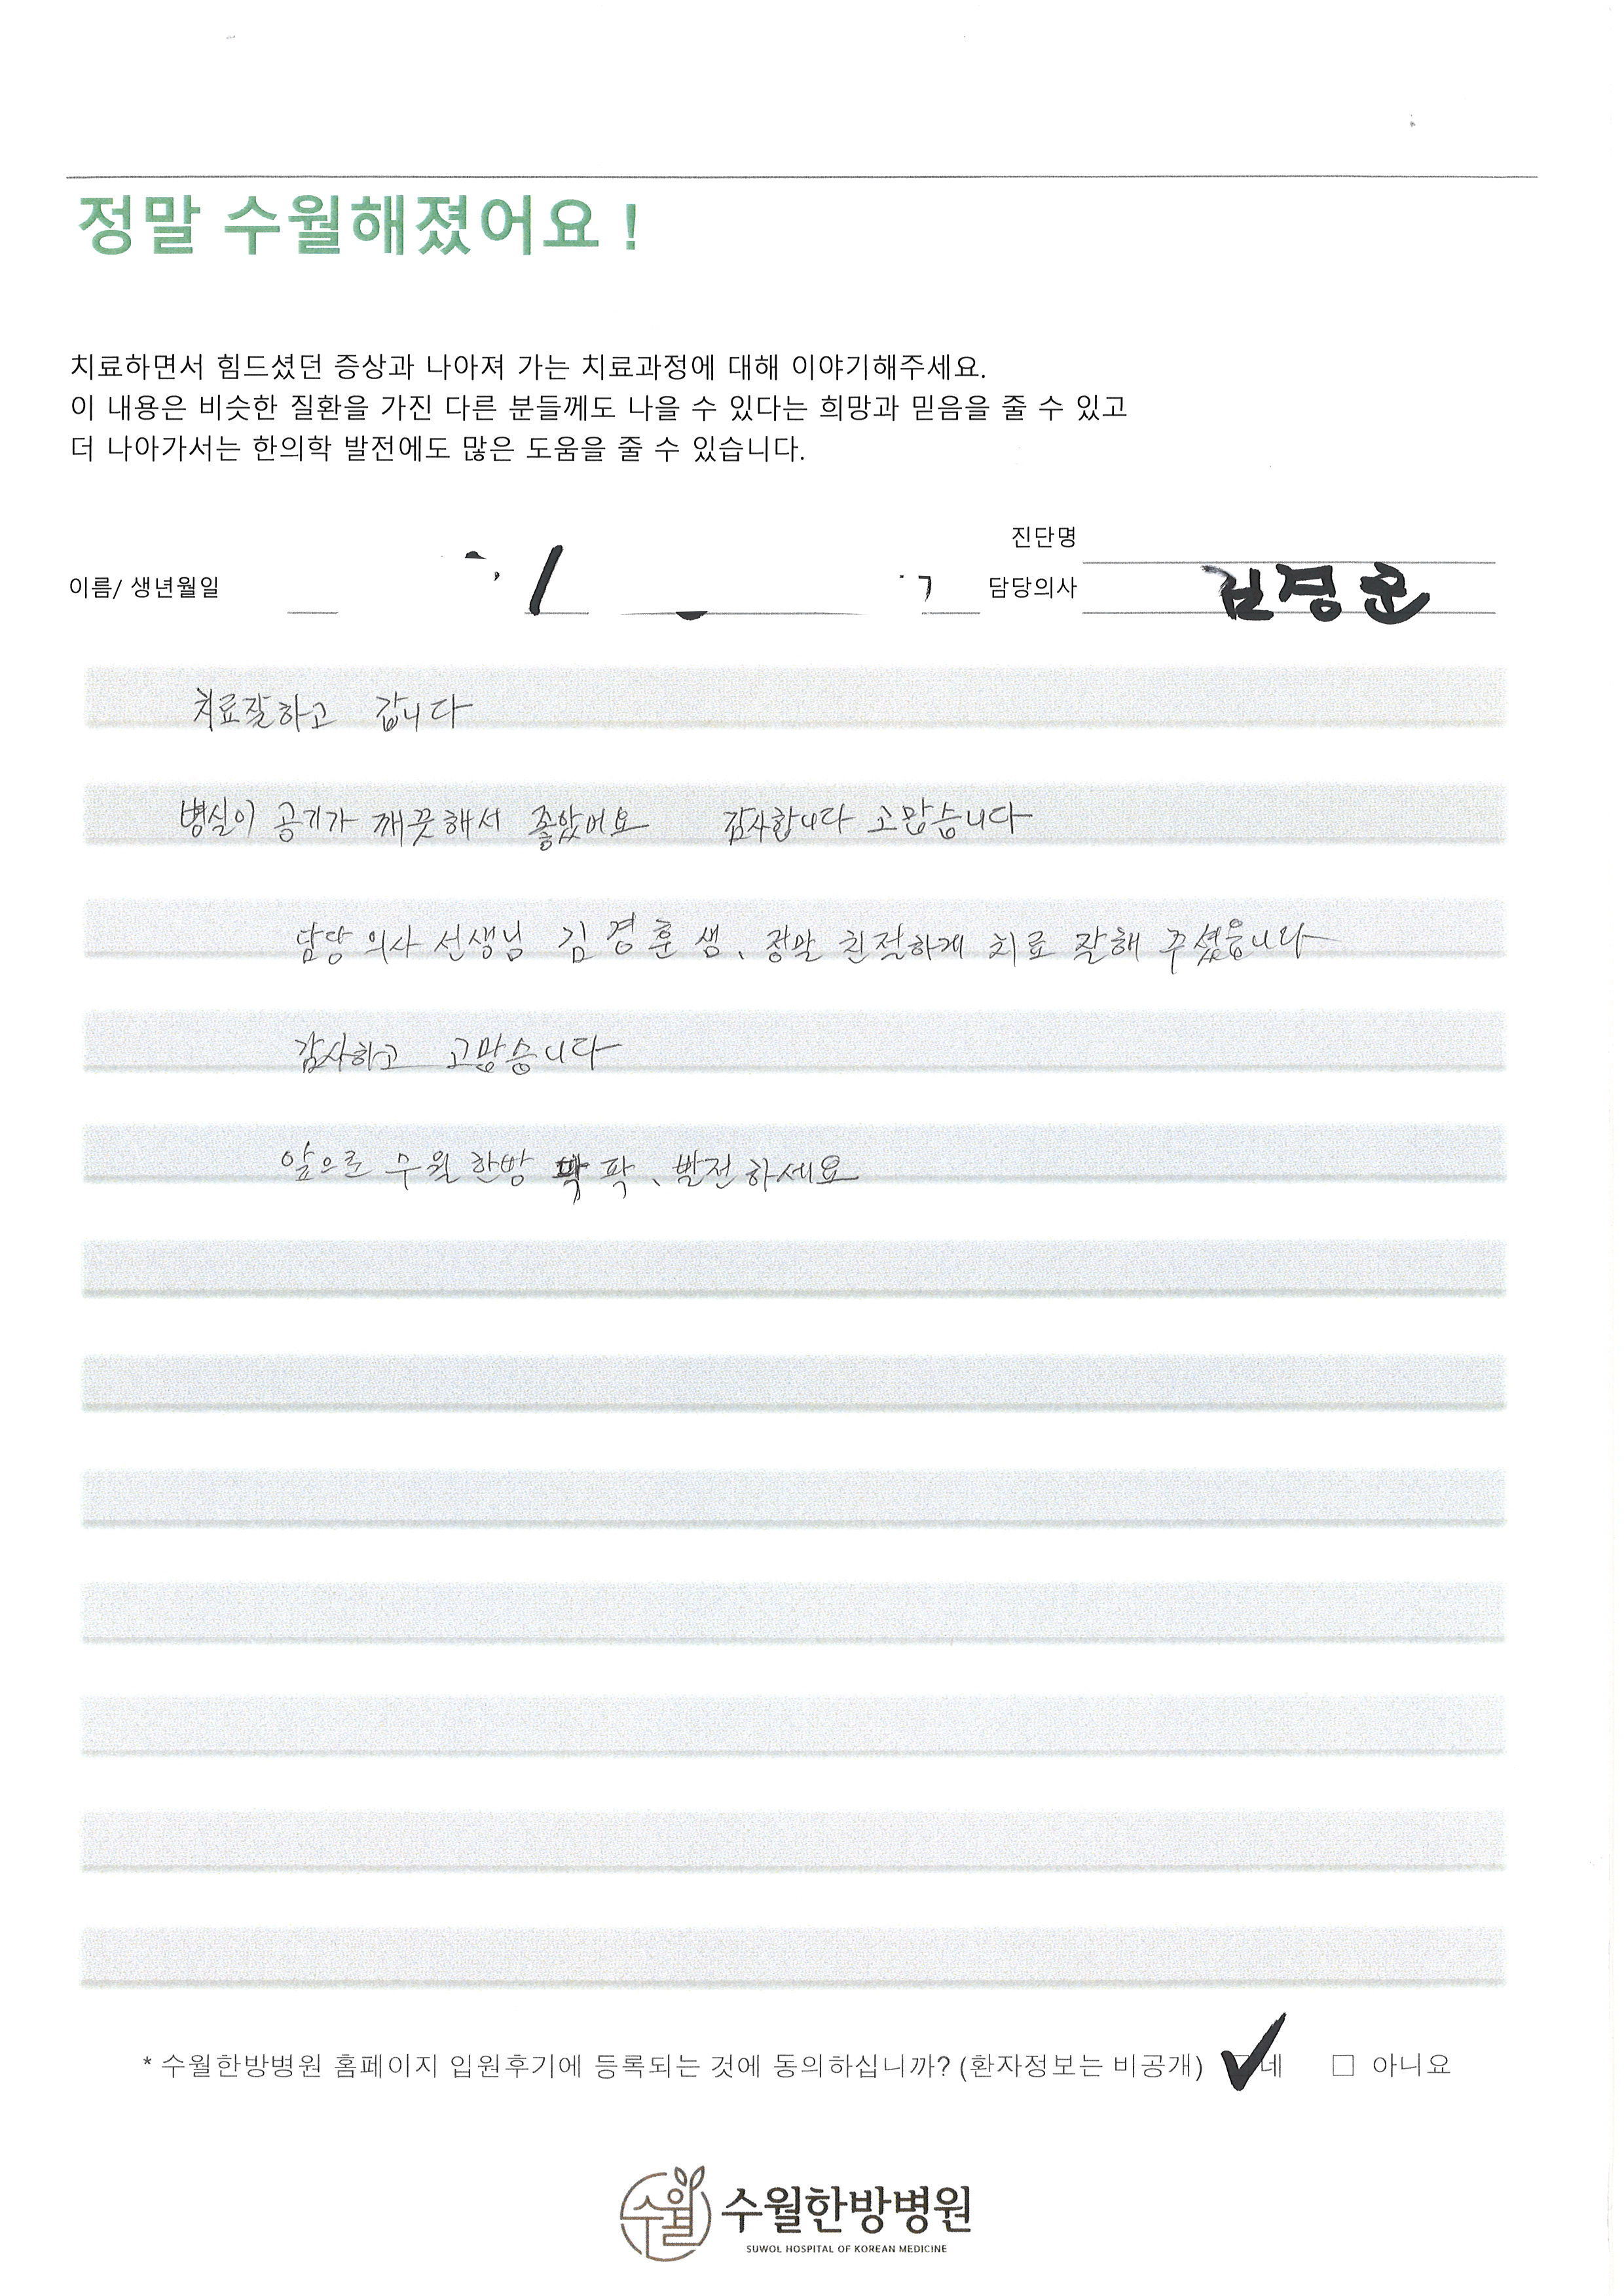 정말 수월해졌어요 !
치료하면서 힘드셨던 증상과 나아져 가는 치료과정에 대해 이야기해주세요.
이 내용은 비슷한 질환을 가진 다른 분들께도 나을 수 있다는 희망과 믿음을 줄 수 있고
더 나아가서는 한의학 발전에도 많은 도움을 줄 수 있습니다.
진단명
이름/ 생년월일 담당의사 김경훈
치료잘하고 갑니다
병실이 공기가 깨끗해서 좋았어요 감사합니다 고맙습니다
담당 의사 선생님 김경훈 샘, 정말 친절하게 치료 잘해 주셨읍니다
감사하고 고맙습니다
앞으로 수월 한방 팍, 발전하세요
* 수월한방병원 홈페이지 입원후기에 등록되는 것에 동의하십니까? (환자정보는 비공개) ✓네 □ 아니요
수월 수월한방병원
SUWOL HOSPITAL OF KOREAN MEDICINE